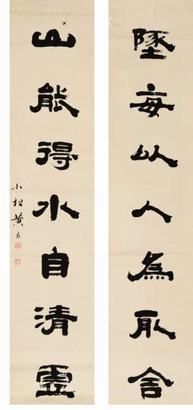 墬每以人為取舍
山能得水自清靈
小松黃易